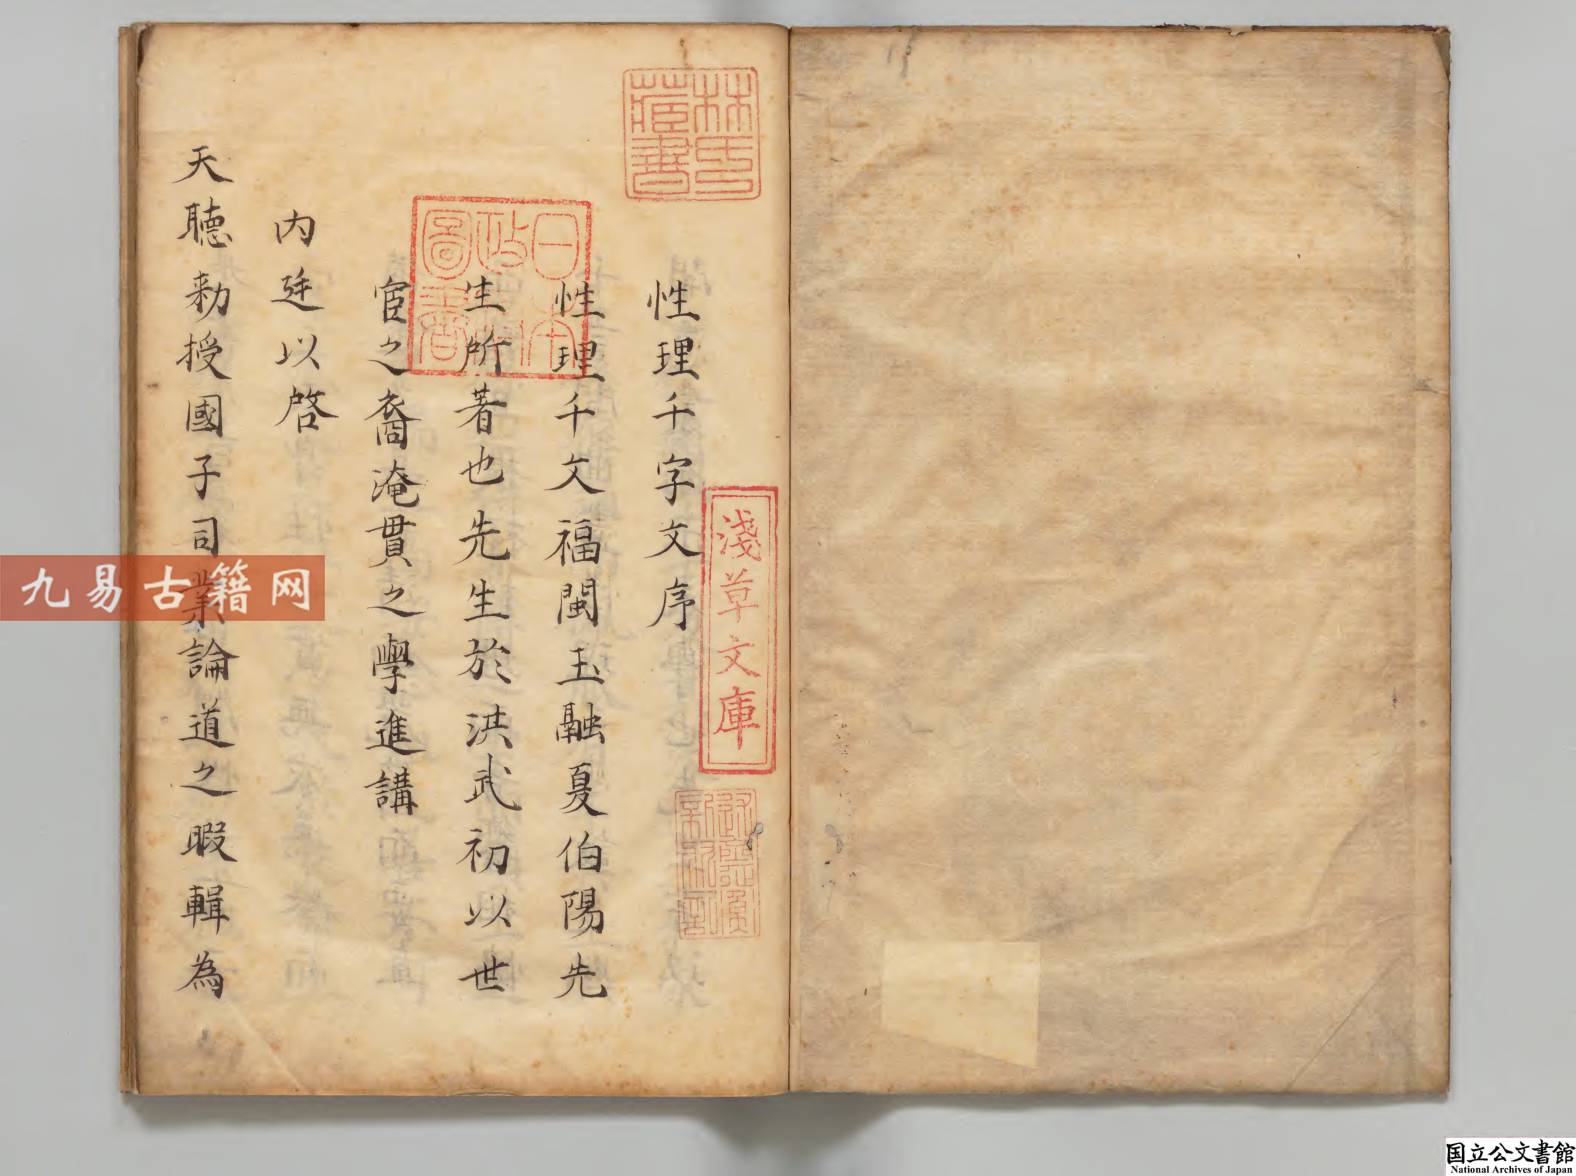 性理千字文序
性理千文福閩玉融夏伯陽先
生所著也先生於洪武初以世
宦之裔淹貫之學進講
内廷以啓
天聽勅授國子司業論道之暇輯為
林氏藏書
日本政府圖書
淺草文庫
九易古籍网
国立公文書館
National Archives of Japan